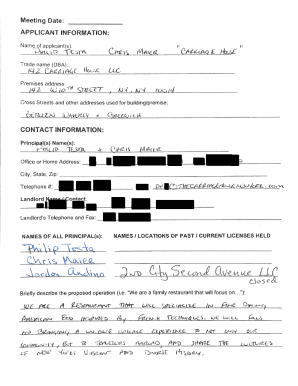 Meeting Date:
APPLICANT INFORMATION:
Name of applicant(s):
Philip Testa Chris Maier "Carriage House"
Trade name (DBA):
142 Carriage House LLC
Premises address:
142 W 10th Street, NY, NY 10014
Cross Streets and other addresses used for building/premise:
Between Waverly & Greenwich
CONTACT INFORMATION:
Principal(s) Name(s):
Philip Testa & Chris Maier
Office or Home Address:
City, State, Zip:
Telephone #:
Landlord Name / Contact:
Landlord's Telephone and Fax:
NAMES OF ALL PRINCIPAL(s): NAMES / LOCATIONS OF PAST / CURRENT LICENSES HELD
Philip Testa
Chris Maier
Jordan Andino 2nd City Second Avenue LLC
closed
Briefly describe the proposed operation (i.e. "We are a family restaurant that will focus on ..."):
We are a restaurant that will specialize in fine dining,
American food inspired by French techniques. We will focus
on bringing a unique village experience to not only our
community, but to builders abroad, and share the cultures
of New York's vibrant and diverse history.